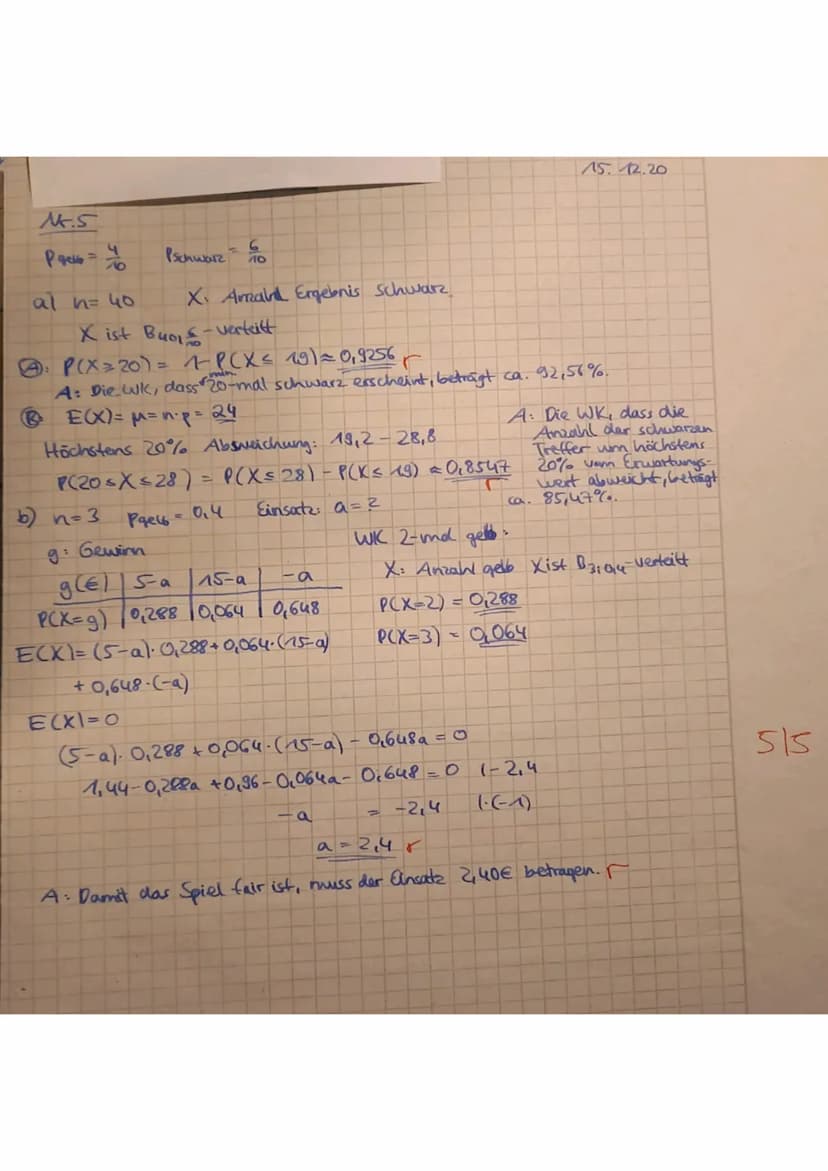 15.12.20
Nr.5
Pgelb = 4/10 Pschwarz = 6/10
a) n= 40 X: Anzahl Ergebnis schwarz
X ist B40; 6/10 - verteilt
Ⓐ: P(X≥20) = 1-P(X≤ 19) ≈ 0,9256 r
A: Die WK, dass min. 20-mal schwarz erscheint, beträgt ca. 92,56%.
Ⓑ E(X)= μ = n·p = 24
Höchstens 20% Abweichung: 19,2 - 28,8
P(20≤X≤28) = P(X≤28) - P(X≤ 19) ≈ 0,8547 r
A: Die WK, dass die
Anzahl der schwarzen
Treffer um höchstens
20% vom Erwartungs-
wert abweicht, beträgt
ca. 85,47%.
b) n=3 Pgelb = 0,4 Einsatz: a=2
g: Gewinn
g(€) | 5-a | 15-a | -a
P(X=g) | 0,288 | 0,064 | 0,648
WK 2-mal gelb:
X: Anzahl gelb X ist B3; 0,4-verteilt
P(X=2) = 0,288
P(X=3) = 0,064
E(X)= (5-a)·0,288+0,064·(15-a)
+ 0,648·(-a)
E(X)=0
(5-a)·0,288 + 0,064·(15-a) - 0,648a = 0
1,44-0,288a +0,96-0,064a- 0,648 = 0 |-2,4
-a = -2,4 |·(-1)
a = 2,4 r
A: Damit das Spiel fair ist, muss der Einsatz 2,40€ betragen. r
5/5